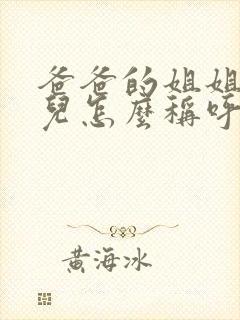 爸爸的姐姐
兒怎麼稱呼
黃海冰